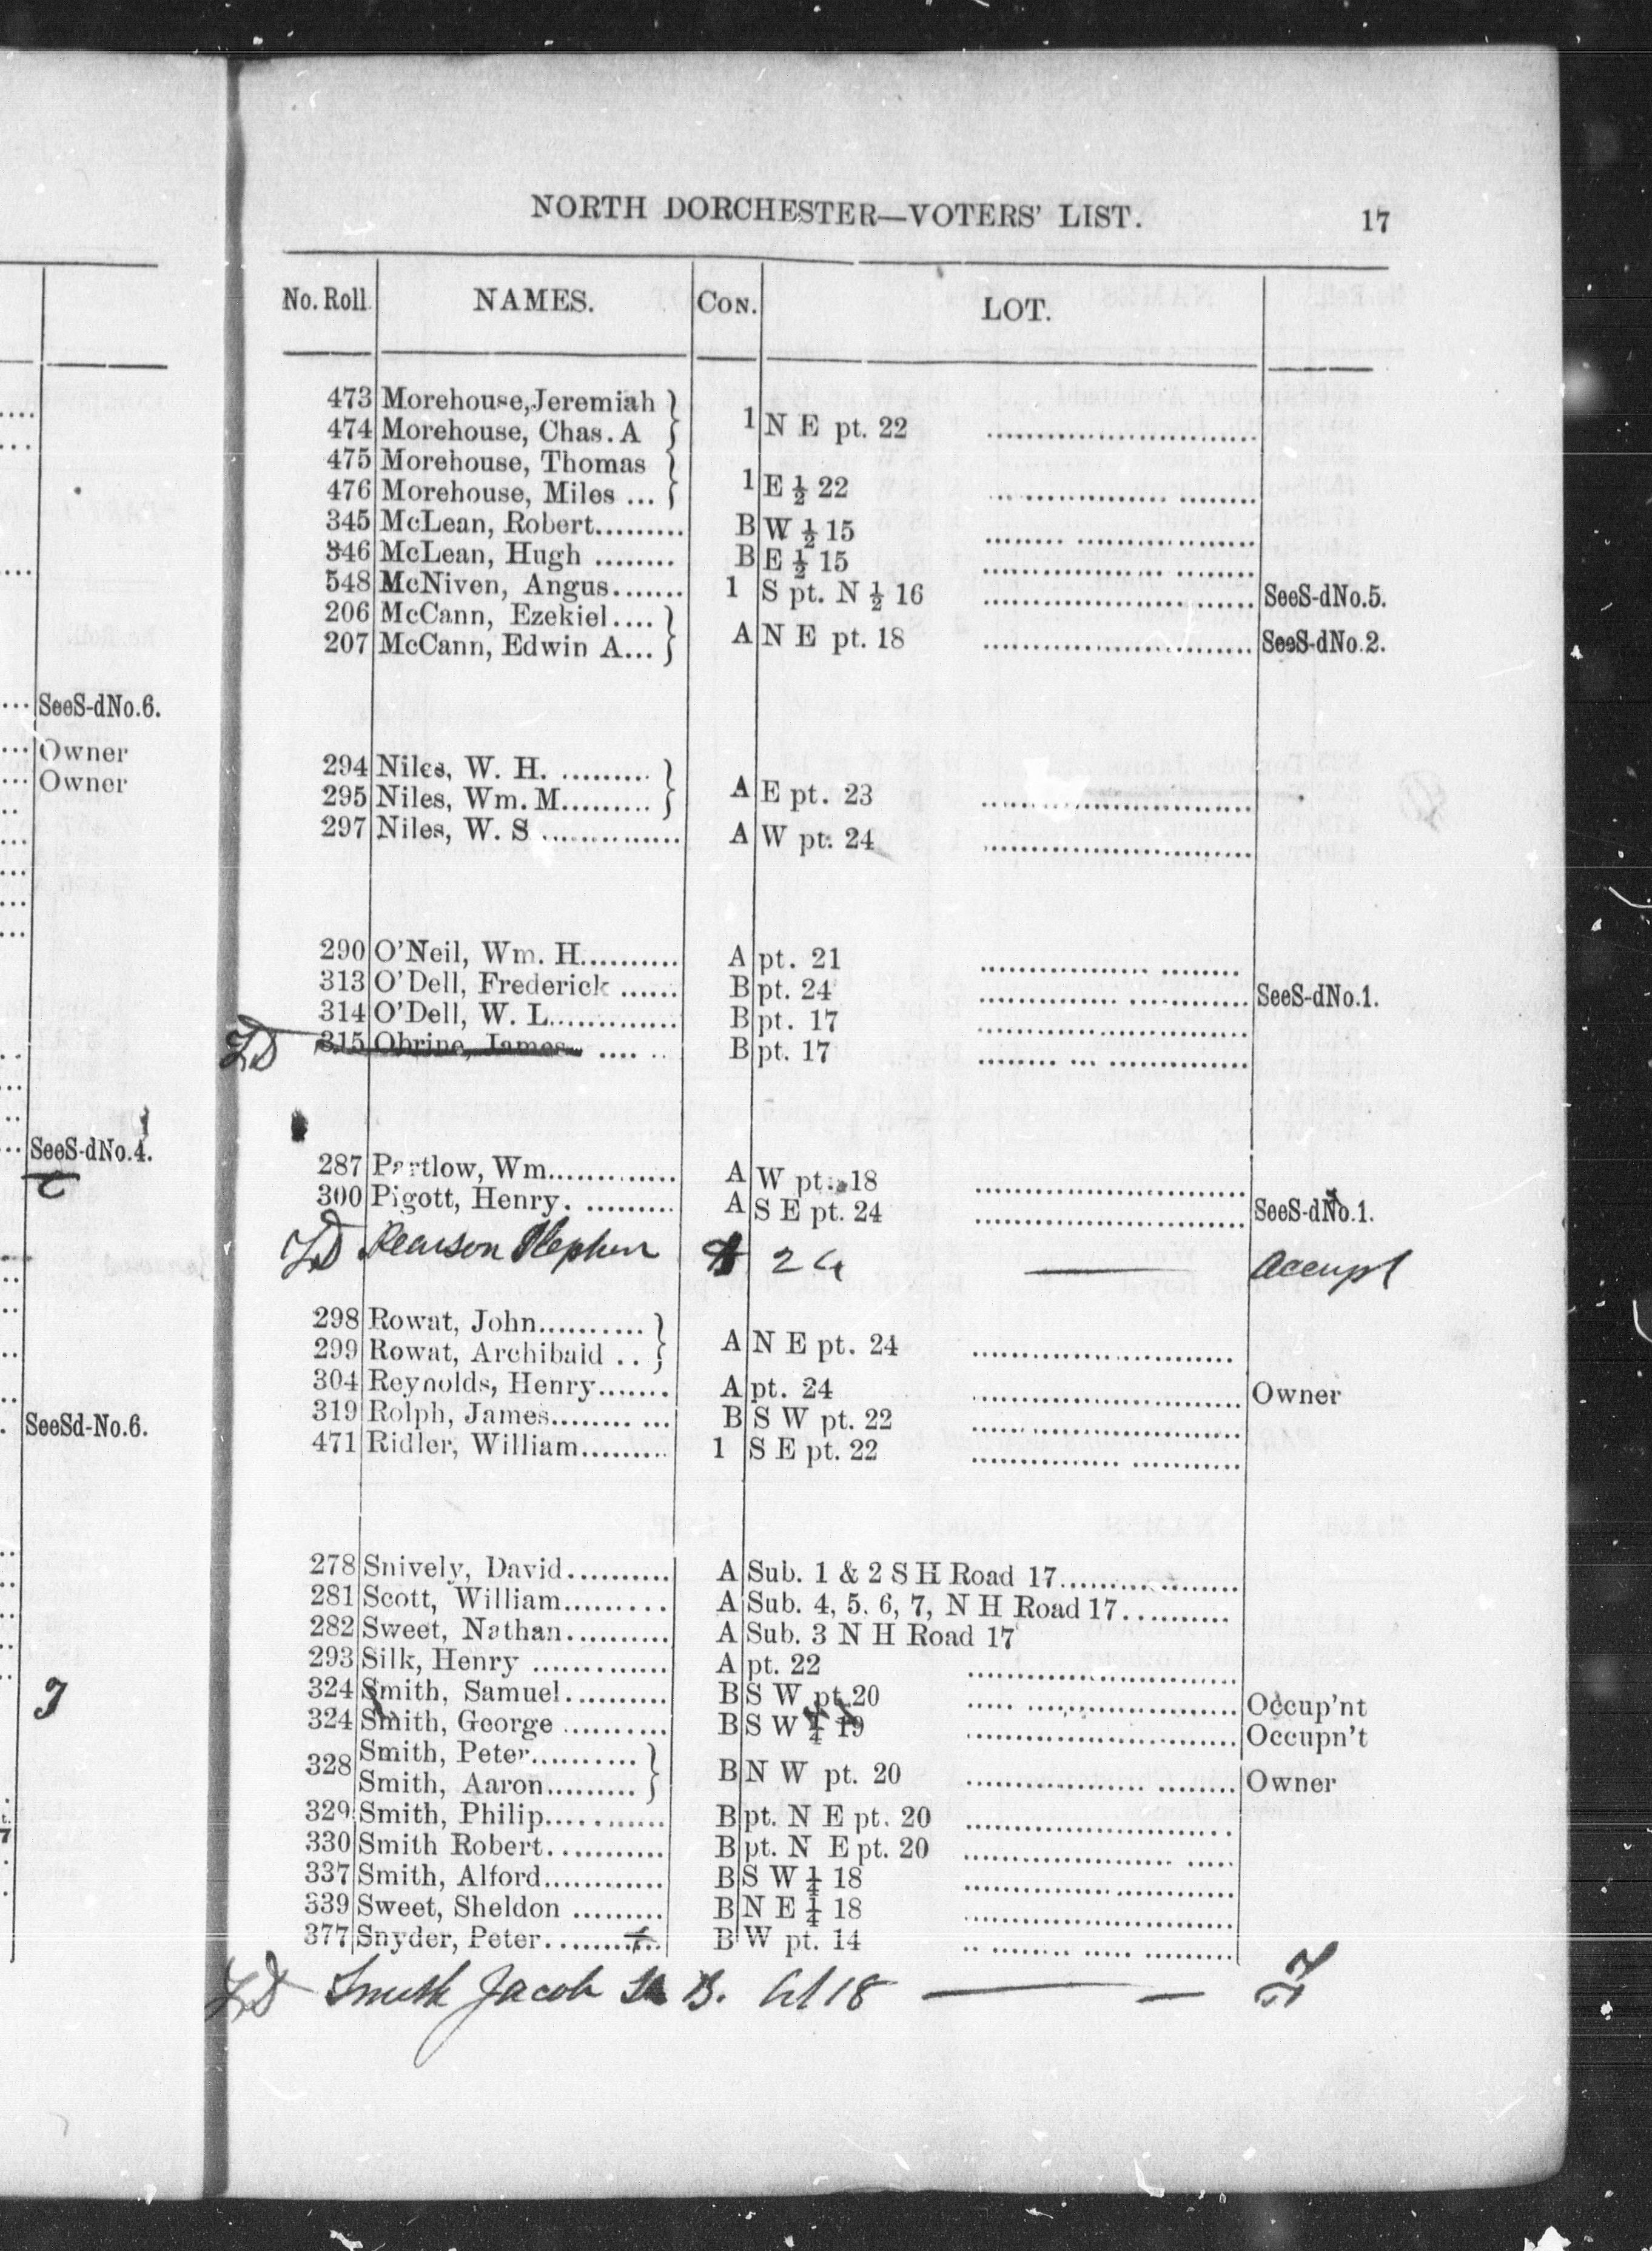 NORTH DORCHESTER—VOTERS' LIST. 17
No. Roll. NAMES. CON. LOT.
473 Morehouse, Jeremiah } 1 N E pt. 22
474 Morehouse, Chas. A
475 Morehouse, Thomas } 1 E ½ 22
476 Morehouse, Miles ...
345 McLean, Robert......... B W ½ 15
346 McLean, Hugh ........ B E ½ 15
548 McNiven, Angus....... 1 S pt. N ½ 16 SeeS-dNo.5.
206 McCann, Ezekiel.... } A N E pt. 18 SeeS-dNo.2.
207 McCann, Edwin A...
SeeS-dNo.6.
Owner
Owner
294 Niles, W. H. ......... } A E pt. 23
295 Niles, Wm. M.........
297 Niles, W. S .............. A W pt. 24
290 O'Neil, Wm. H.......... A pt. 21
313 O'Dell, Frederick ...... B pt. 24 SeeS-dNo.1.
314 O'Dell, W. L............. B pt. 17
315 Obrine, James B pt. 17
SeeS-dNo.4.
287 Partlow, Wm............. A W pt. 18
300 Pigott, Henry. ......... A S E pt. 24 SeeS-dNo.1.
Pearson Stephen A 24 Occupt
298 Rowat, John.......... } A N E pt. 24
299 Rowat, Archibald ..
304 Reynolds, Henry....... A pt. 24 Owner
319 Rolph, James........ ... B S W pt. 22
SeeSd-No.6.
471 Ridler, William......... 1 S E pt. 22
278 Snively, David.......... A Sub. 1 & 2 S H Road 17
281 Scott, William......... A Sub. 4, 5. 6, 7, N H Road 17
282 Sweet, Nathan.......... A Sub. 3 N H Road 17
293 Silk, Henry ............. A pt. 22
324 Smith, Samuel.......... B S W pt 20 Occup'nt
324 Smith, George .......... B S W ¼ 19 Occupn't
328 Smith, Peter.......... } B N W pt. 20 Owner
Smith, Aaron.........
329 Smith, Philip............ B pt. N E pt. 20
330 Smith Robert............ B pt. N E pt. 20
337 Smith, Alford............ B S W ¼ 18
339 Sweet, Sheldon ......... B N E ¼ 18
377 Snyder, Peter........... B W pt. 14
Smith Jacob B. 18